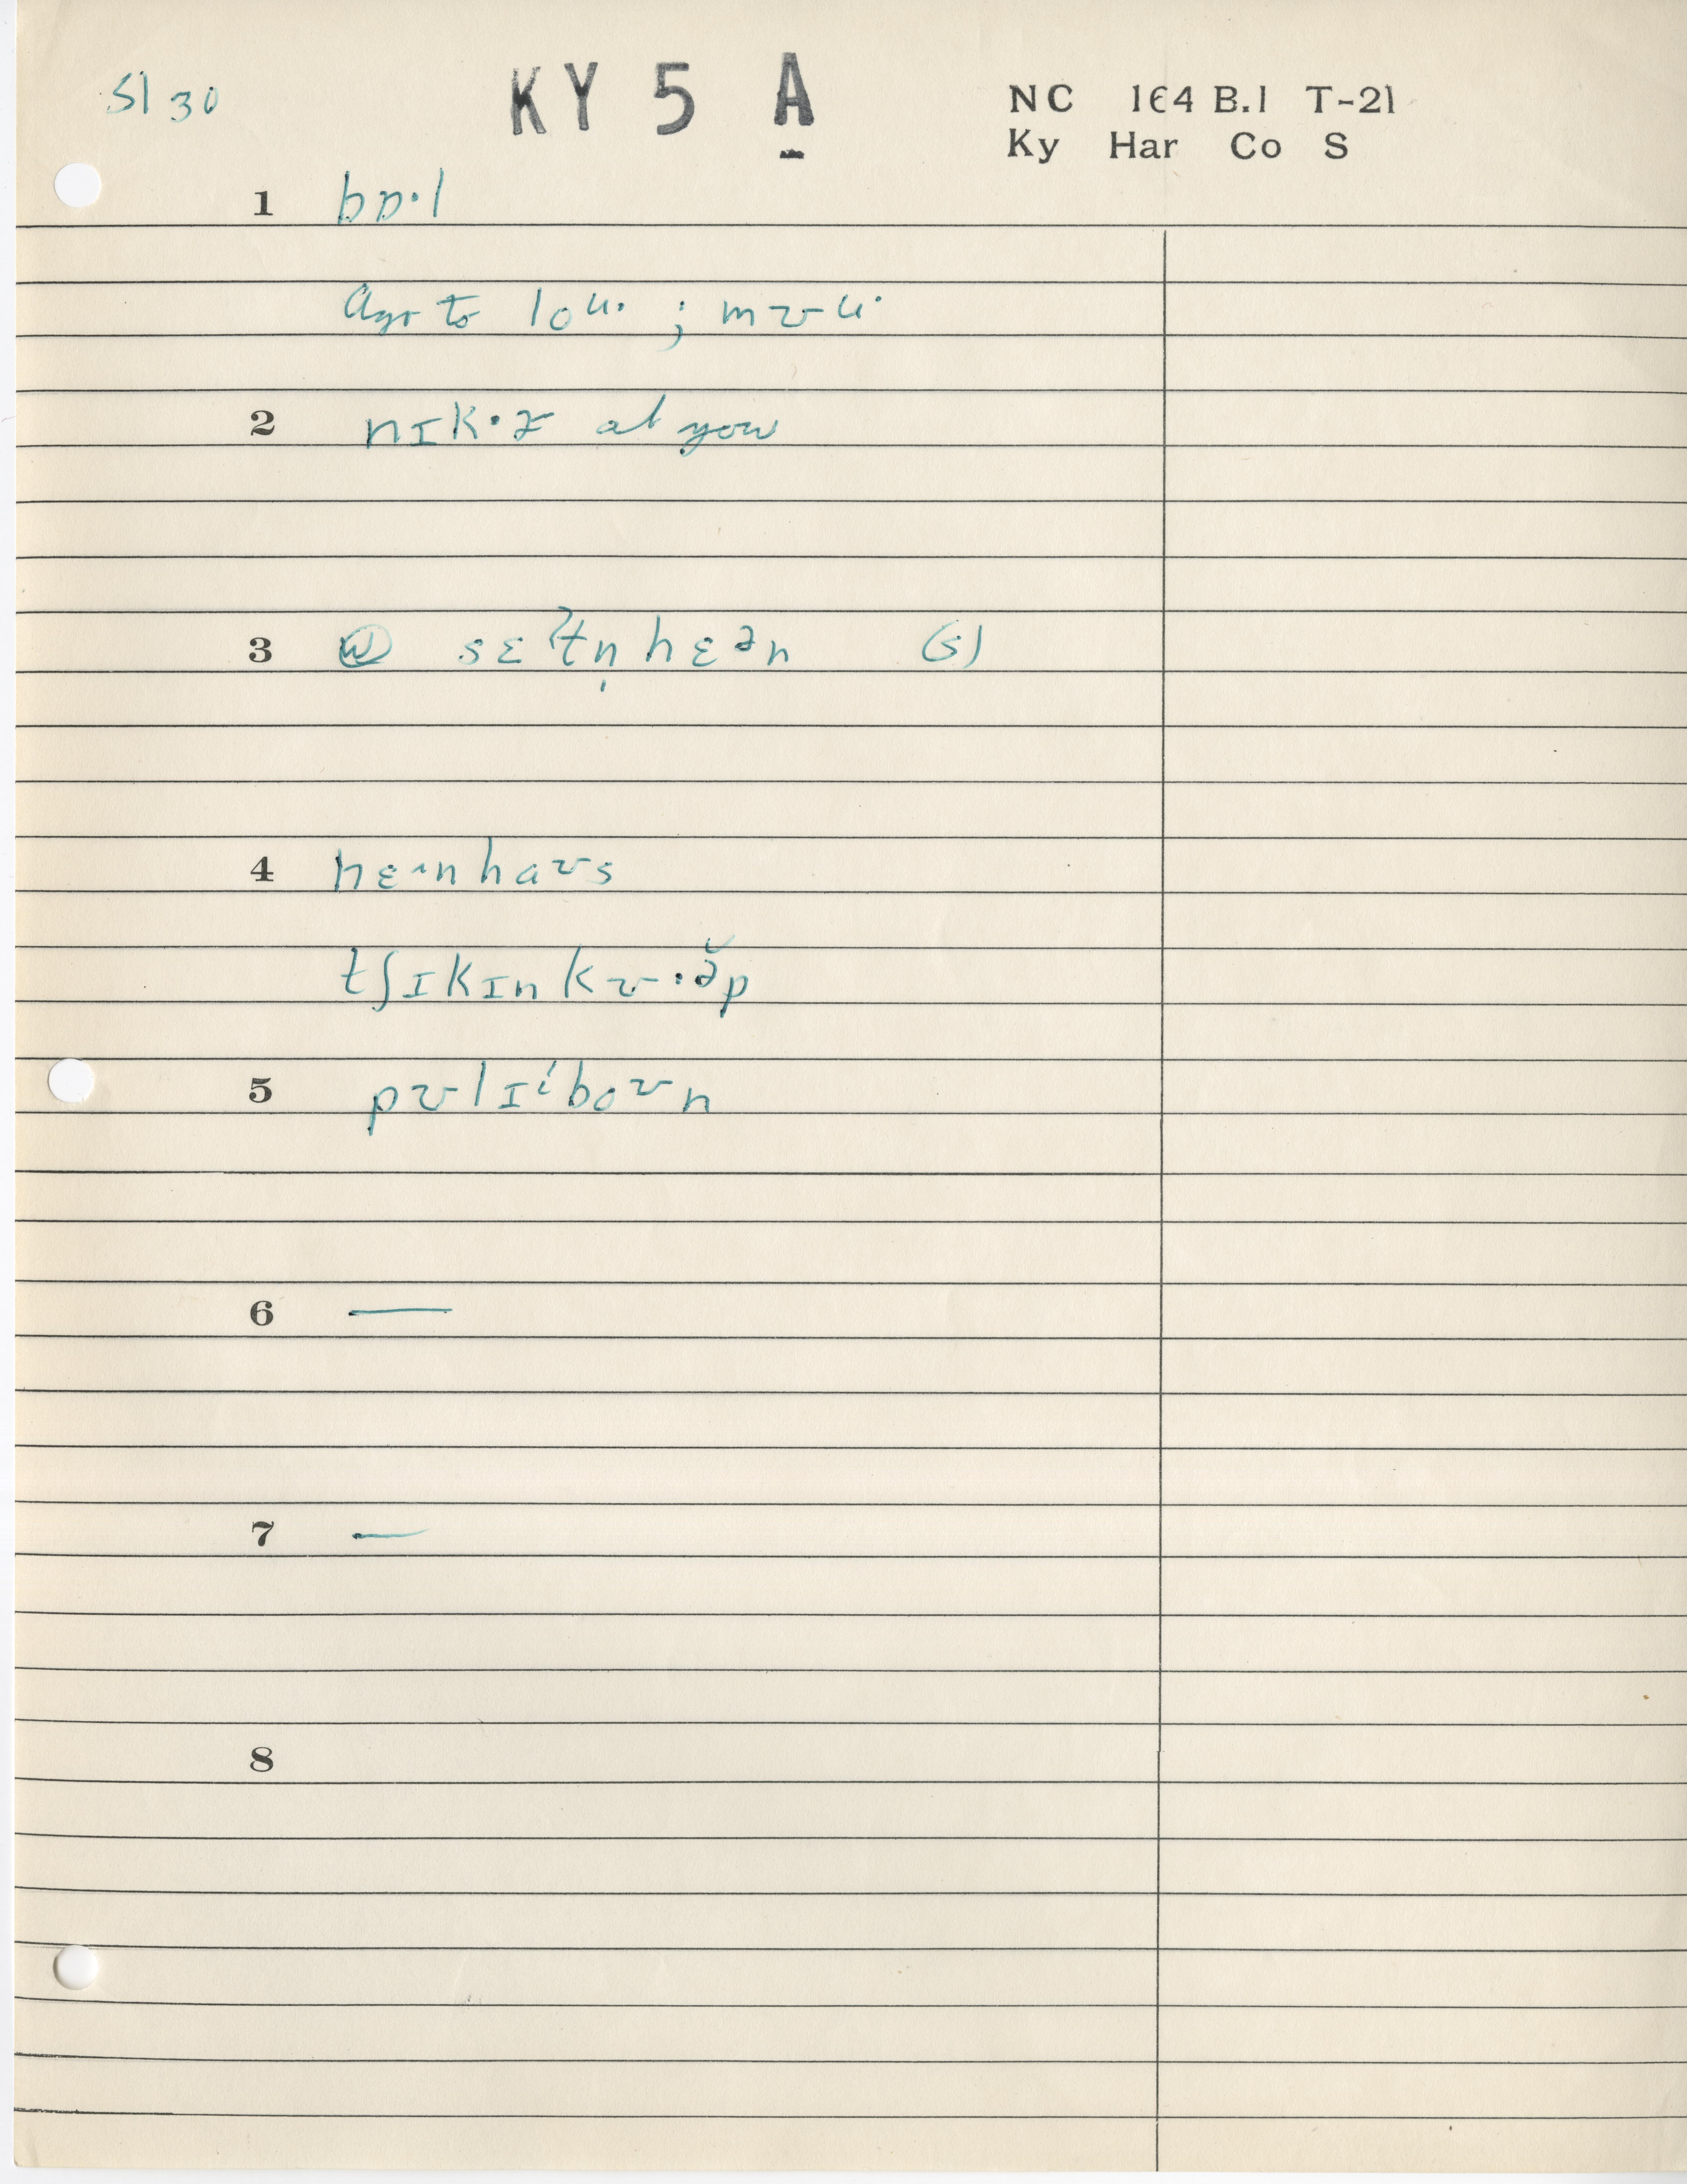 51 30
KY 5 A
NC 164 B.1 T-21
Ky Har Co S
1 bɒ·l
to lou· ; mʊu·
2 nɪk·ɚ at you
3 Ⓦ sɛʔtn̩hɛən (s)
4 hɛᴧnhaʊs
tʃɪkɪnkʊ·ə̆p
5 pʊlɪⁱboʊn
6 —
7 —
8